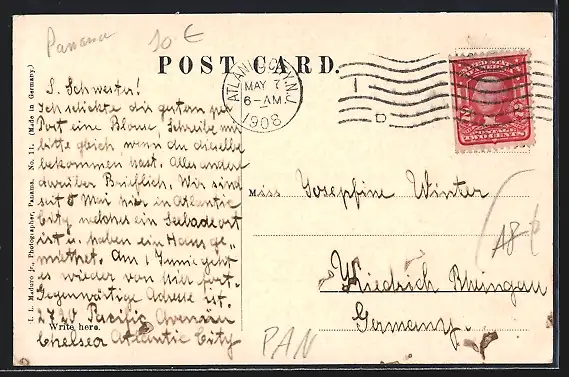 Panama
10 €
POST CARD.
ATLANTIC CITY, N.J.
MAY 7
6-AM
1908
1
D
UNITED STATES OF AMERICA
POSTAGE
TWO CENTS
I. L. Maduro jr., Photographer, Panama. No. 11. (Made in Germany.)
L. Schwester!
Ich schickte dir gestern per
Post eine Blouse, Schreibe mir
bitte gleich wenn du dieselbe
bekommen hast. Alles andere
darüber Brieflich. Wir sind
seit 5 Mai hier in Atlantic
City welches ein Seebadeort
ist u. haben ein Haus ge-
miethet. Am 1 Junie geht
es wieder von hier fort.
Gegenwärtige Adresse ist.
2790 Pacific Avenue
Write here.
Chelsea Atlantic City
Miss Josephine Winter
Kiedrich Rheingau
Germany.
PAN